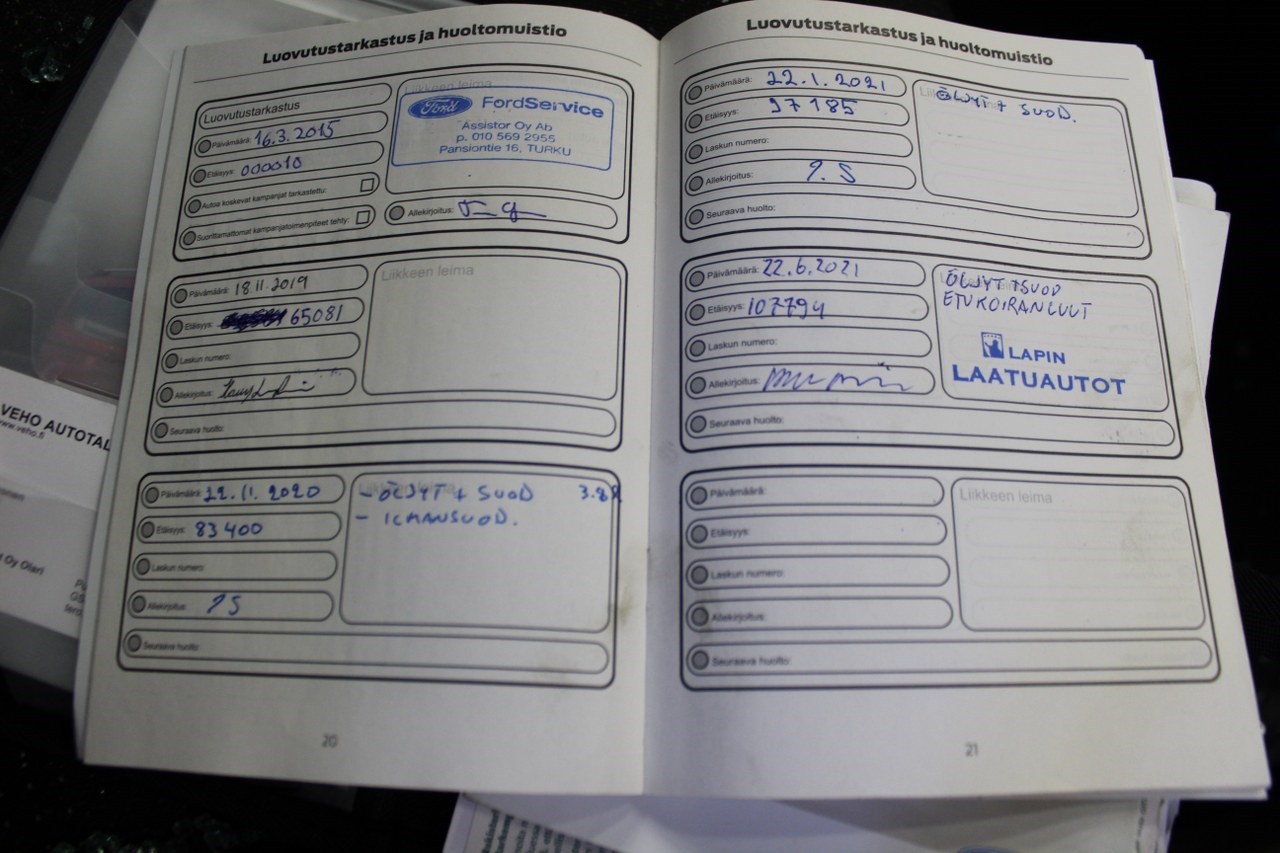 Luovutustarkastus ja huoltomuistio
Luovutustarkastus
Päivämäärä: 16.3.2015
Etäisyys: 000010
Autoa koskevat kampanjat tarkastettu:
Suorittamattomat kampanjatoimenpiteet tehty:
Liikkeen leima
Ford FordService
Assistor Oy Ab
p. 010 569 2955
Pansiontie 16, TURKU
Allekirjoitus:
Päivämäärä: 18 11 2019
Etäisyys: 65081
Laskun numero:
Allekirjoitus:
Seuraava huolto:
Liikkeen leima
Päivämäärä: 12.11.2020
Etäisyys: 83400
Laskun numero:
Allekirjoitus:
Seuraava huolto:
Liikkeen leima
- ÖLJYT + SUOD 3.8
- ILMANSUOD.
20
Luovutustarkastus ja huoltomuistio
Päivämäärä: 22.1.2021
Etäisyys: 97185
Laskun numero:
Allekirjoitus:
Seuraava huolto:
ÖLJYT + SUOD.
Päivämäärä: 22.6.2021
Etäisyys: 107794
Laskun numero:
Allekirjoitus:
Seuraava huolto:
ÖLJYT +SUOD
ETUKOIRANLUUT
LAPIN
LAATUAUTOT
Päivämäärä:
Etäisyys:
Laskun numero:
Allekirjoitus:
Seuraava huolto:
Liikkeen leima
21
VEHO AUTOTAL
www.veho.fi
t Oy Olari